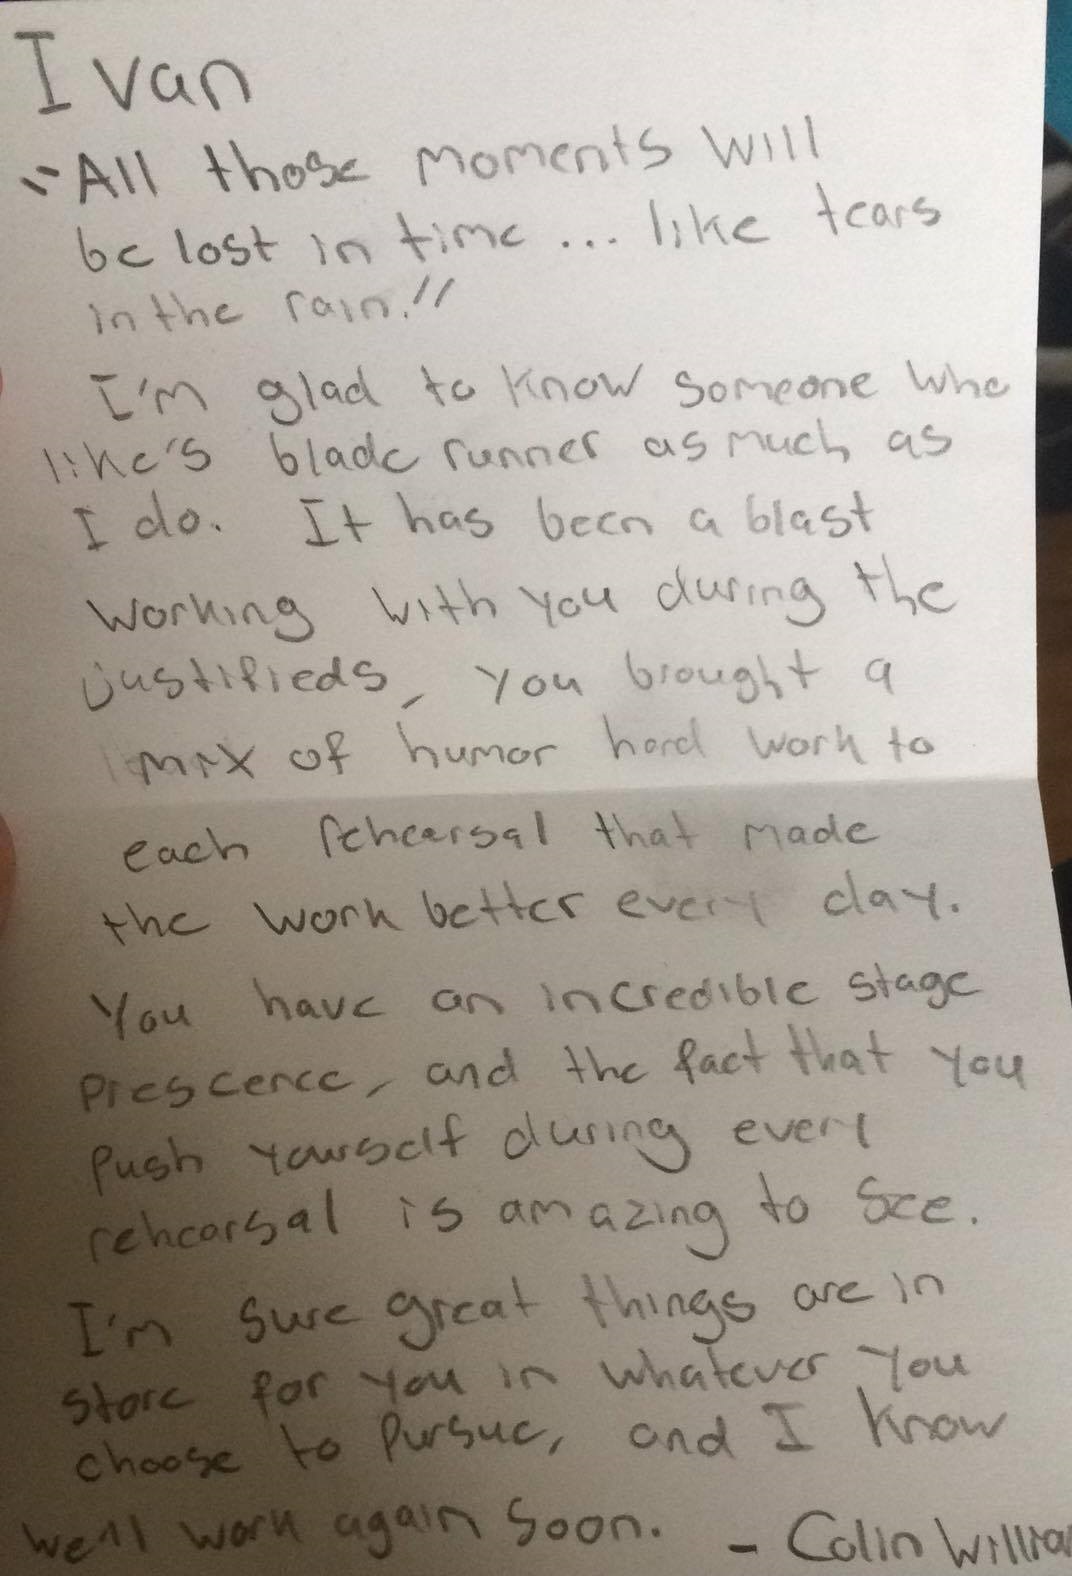 Ivan
"All those moments will
be lost in time ... like tears
in the rain."
I'm glad to know someone who
like's blade runner as much as
I do. It has been a blast
working with you during the
justifieds, you brought a
mix of humor hard work to
each rehearsal that made
the work better every day.
You have an incredible stage
prescence, and the fact that you
push yourself during every
rehearsal is amazing to see.
I'm sure great things are in
store for you in whatever you
choose to pursue, and I know
we'll work again soon. - Colin